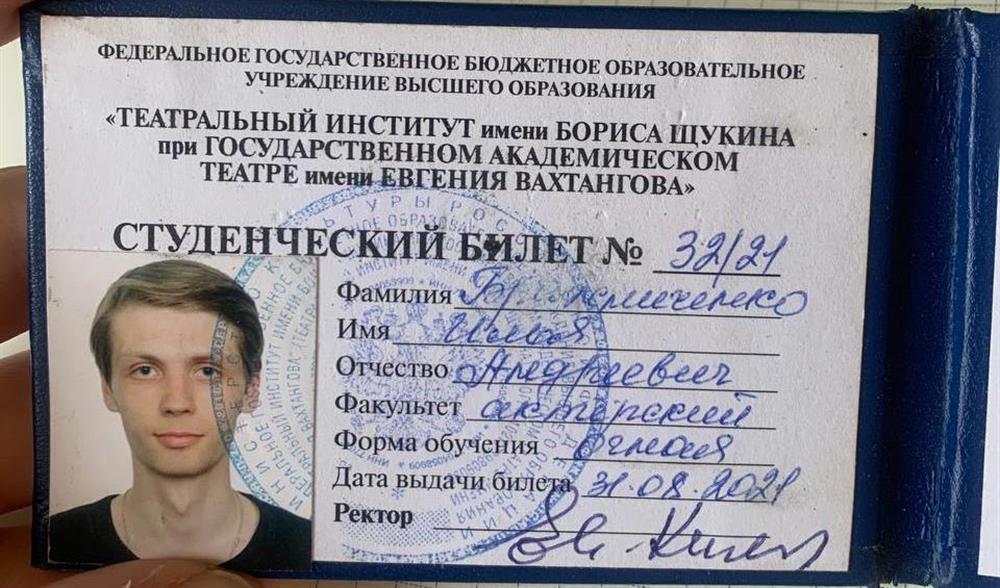 ФЕДЕРАЛЬНОЕ ГОСУДАРСТВЕННОЕ БЮДЖЕТНОЕ ОБРАЗОВАТЕЛЬНОЕ
УЧРЕЖДЕНИЕ ВЫСШЕГО ОБРАЗОВАНИЯ
«ТЕАТРАЛЬНЫЙ ИНСТИТУТ имени БОРИСА ЩУКИНА
при ГОСУДАРСТВЕННОМ АКАДЕМИЧЕСКОМ
ТЕАТРЕ имени ЕВГЕНИЯ ВАХТАНГОВА»
СТУДЕНЧЕСКИЙ БИЛЕТ № 32/21
Фамилия
Имя Илья
Отчество Андреевич
Факультет актерский
Форма обучения очная
Дата выдачи билета 31.08.2021
Ректор